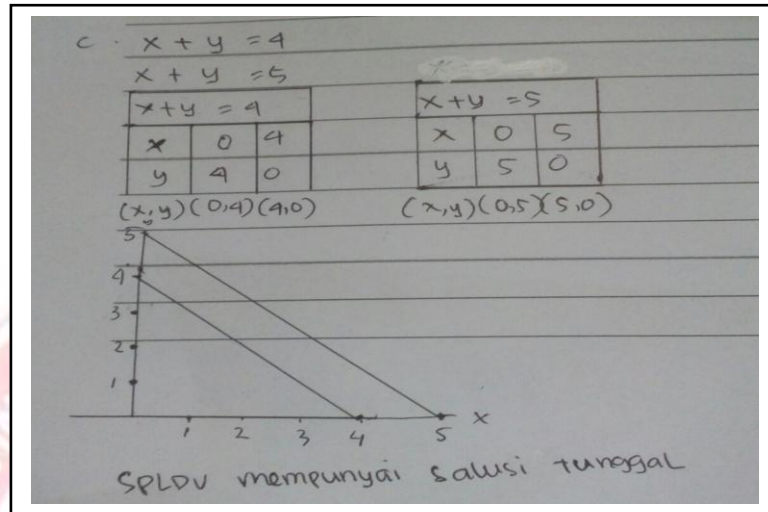 c. x + y = 4
x + y = 5
x+y = 4
x 0 4
y 4 0
(x,y) (0,4) (4,0)
x+y = 5
x 0 5
y 5 0
(x,y) (0,5) (5,0)
y
5
4
3
2
1
1 2 3 4 5 x
SPLDV mempunyai salusi tunggal